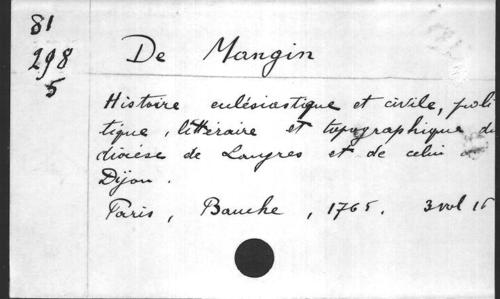 81
298
5
De Mangin
Histoire eclésiastique et civile, poli
tique, littéraire et topographique du
diocèse de Langres et de celui de
Dijon.
Paris, Bauche, 1765. 3 vol